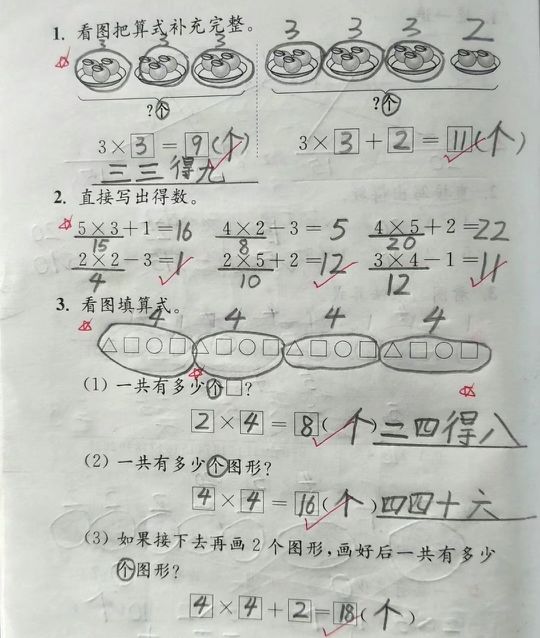 1. 看图把算式补充完整。
3 3 3 3 3 3 2
?个 ?个
3×3=9(个) 3×3+2=11(个)
三三得九
2. 直接写出得数。
5×3+1=16 4×2-3=5 4×5+2=22
15 8 20
2×2-3=1 2×5+2=12 3×4-1=11
4 10 12
3. 看图填算式。
4 4 4 4
△□○□△□○□△□○□△□○□
(1) 一共有多少个□?
2×4=8(个)二四得八
(2) 一共有多少个图形?
4×4=16(个)四四十六
(3) 如果接下去再画2个图形,画好后一共有多少
个图形?
4×4+2=18(个)